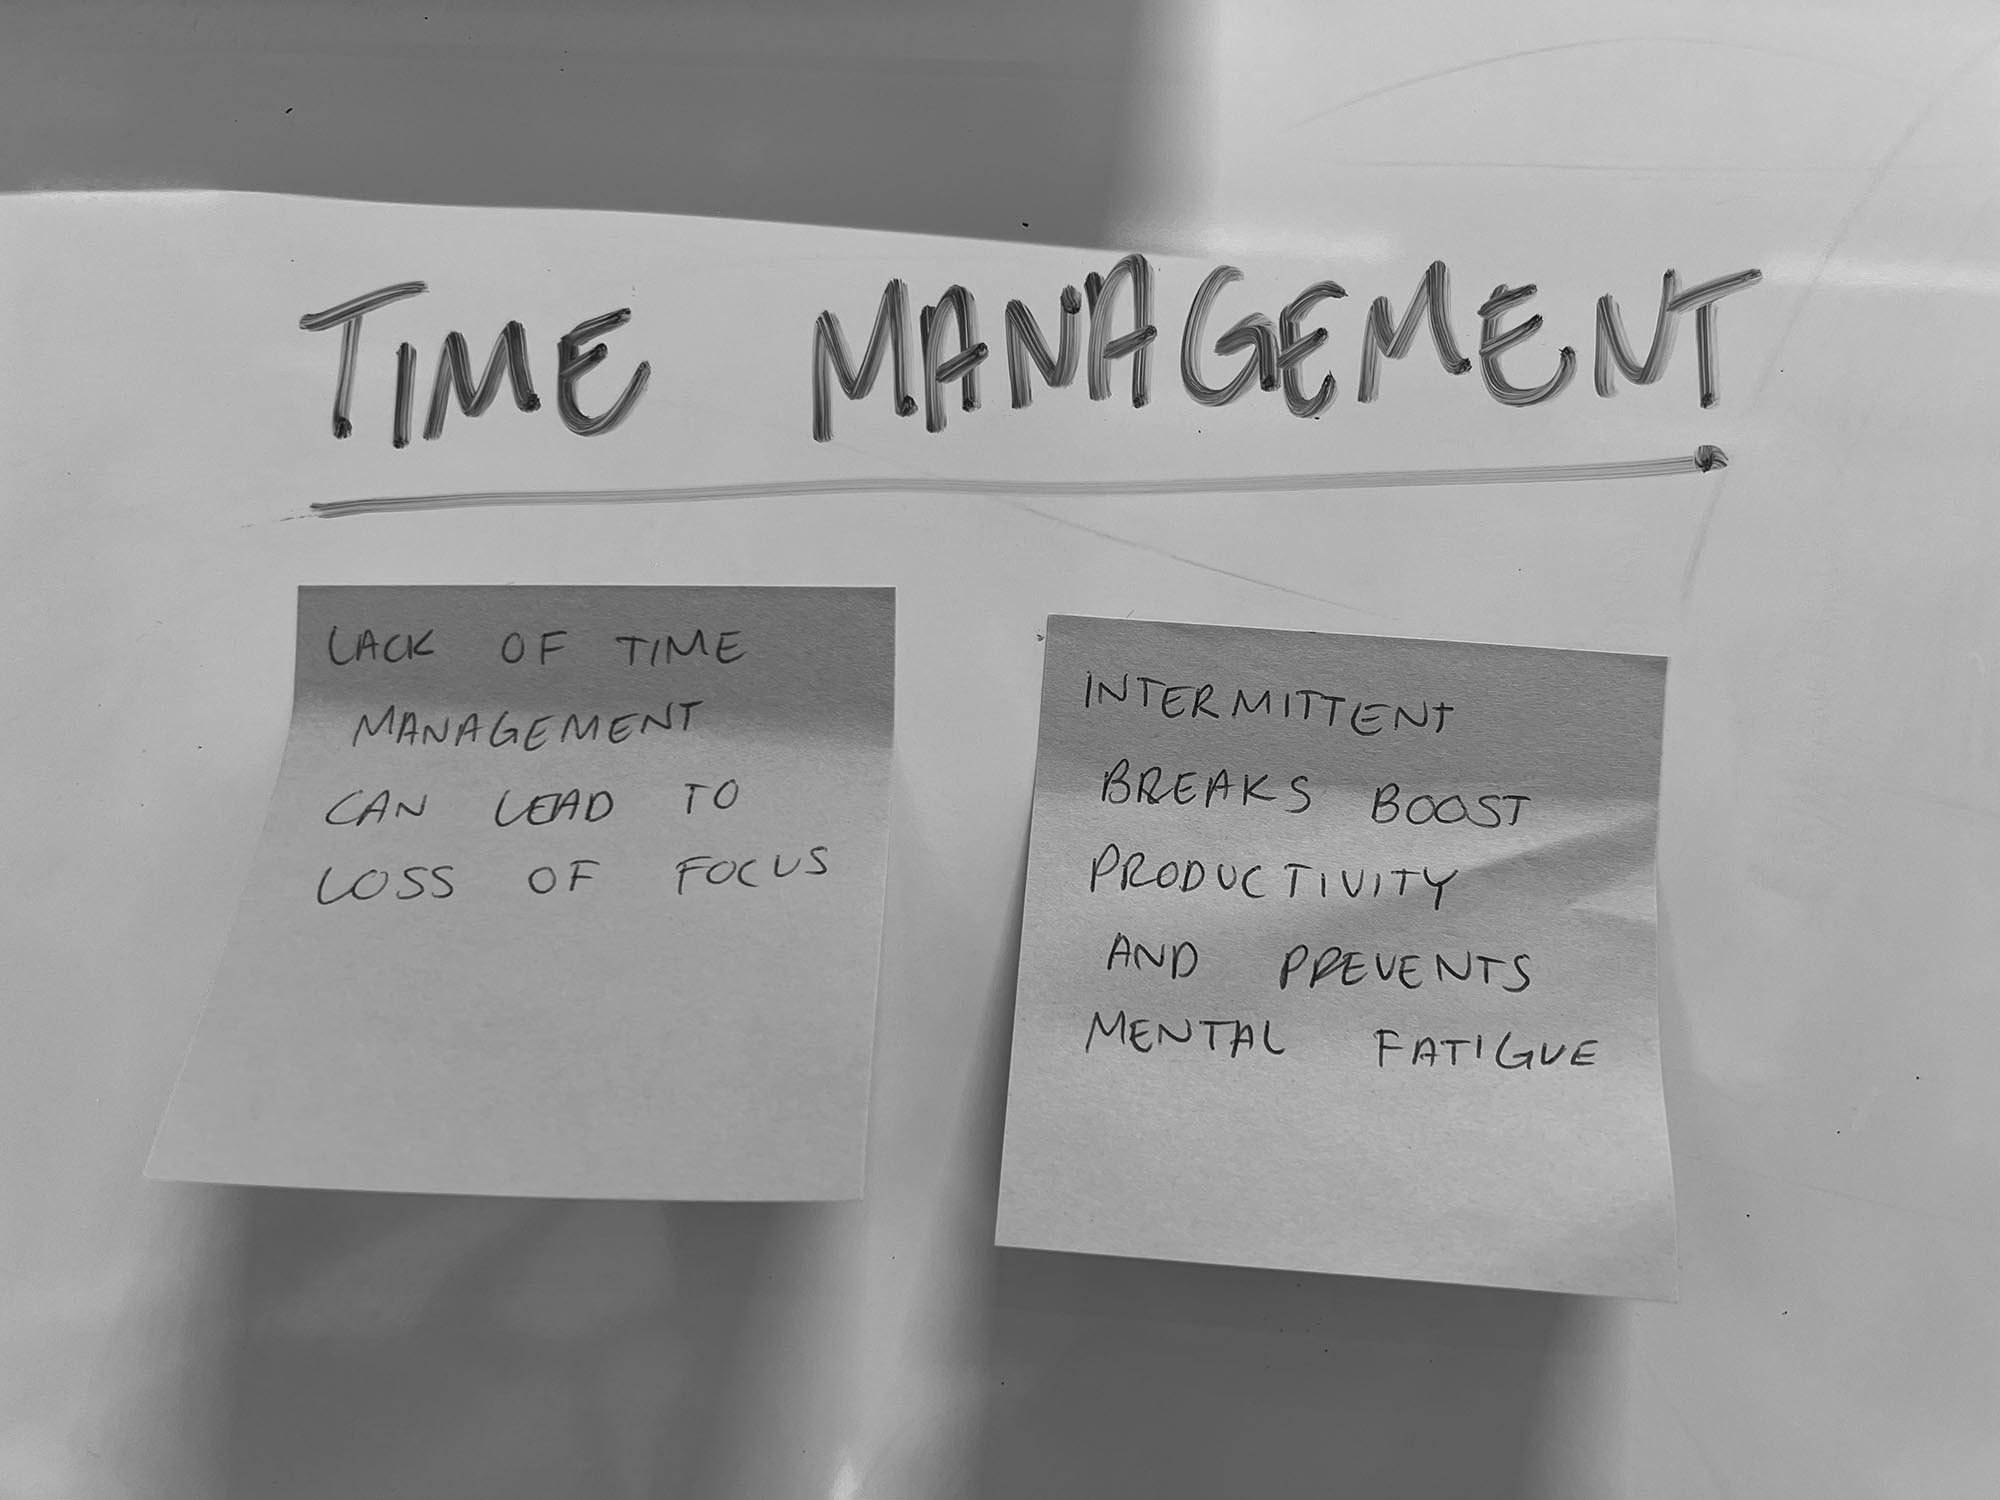 TIME MANAGEMENT
LACK OF TIME
MANAGEMENT
CAN LEAD TO
LOSS OF FOCUS
INTERMITTENT
BREAKS BOOST
PRODUCTIVITY
AND PREVENTS
MENTAL FATIGUE